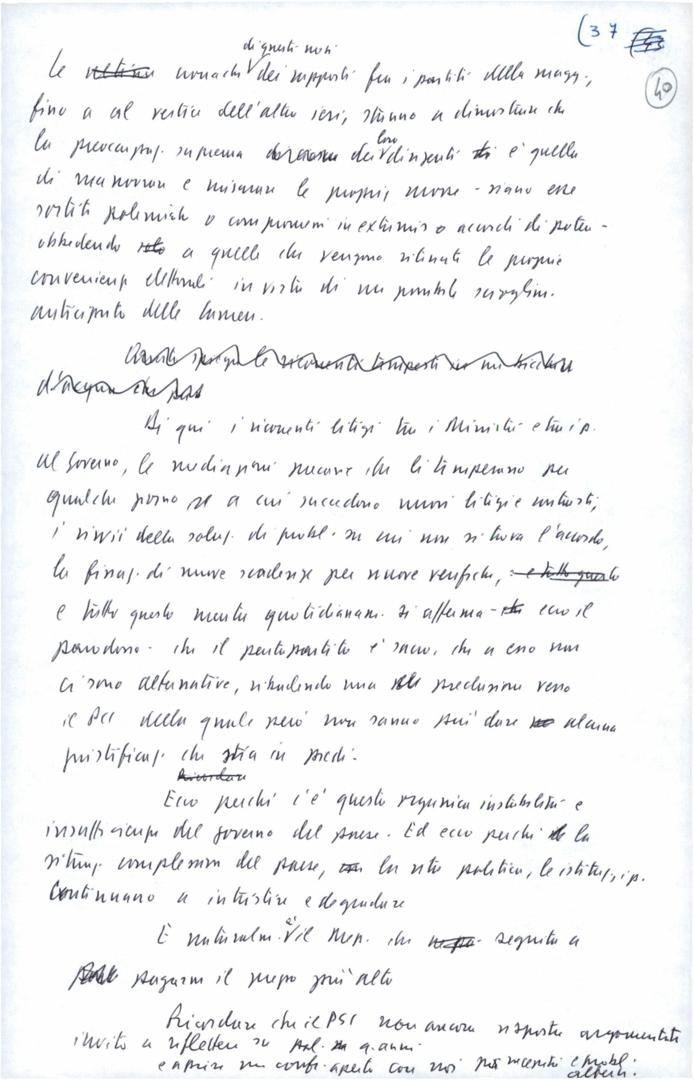 (37
40
di questi mesi
Le cronache dei rapporti fra i partiti della magg.,
fino a al vertice dell'altro ieri, stanno a dimostrare che
la preoccupaz. suprema dei loro dirigenti è quella
di manovrare e misurare le proprie mosse - siano esse
sortite polemiche o compromessi in extremis o accordi di potere -
obbedendo solo a quelle che vengono ritenute le proprie
convenienze elettorali in vista di un possibile scioglim.
anticipato delle Camere.
d'acqua che
Di qui i ricorrenti litigi tra i Ministri e tra i p.
al governo, le mediazioni precarie che li temperano per
qualche giorno e a cui succedono nuovi litigi e contrasti,
i rinvii della soluz. di probl. su cui non si trova l'accordo,
la fissaz. di nuove scadenze per nuove verifiche, e tutto questo
e tutto questo mentre quotidianam. si afferma - ecco il
paradosso - che il pentapartito è sacro, che a esso non
ci sono alternative, ribadendo una preclusione verso
il PCI della quale però non sanno più dare alcuna
giustificaz. che stia in piedi.
Ricordare
Ecco perché c'è questa organica instabilità e
insufficienza del governo del paese. Ed ecco perché la
situaz. complessiva del paese, la vita politica, le istituz., i p.
continuano a intristire e degradare
È naturalm. è il Mep. che seguita a
pagarne il prezzo più alto
Ricordare che il PSI non ancora risposta argomentata
invito a riflettere su pol. q. anni
e aprire un confr. aperto con noi più recenti e probl.